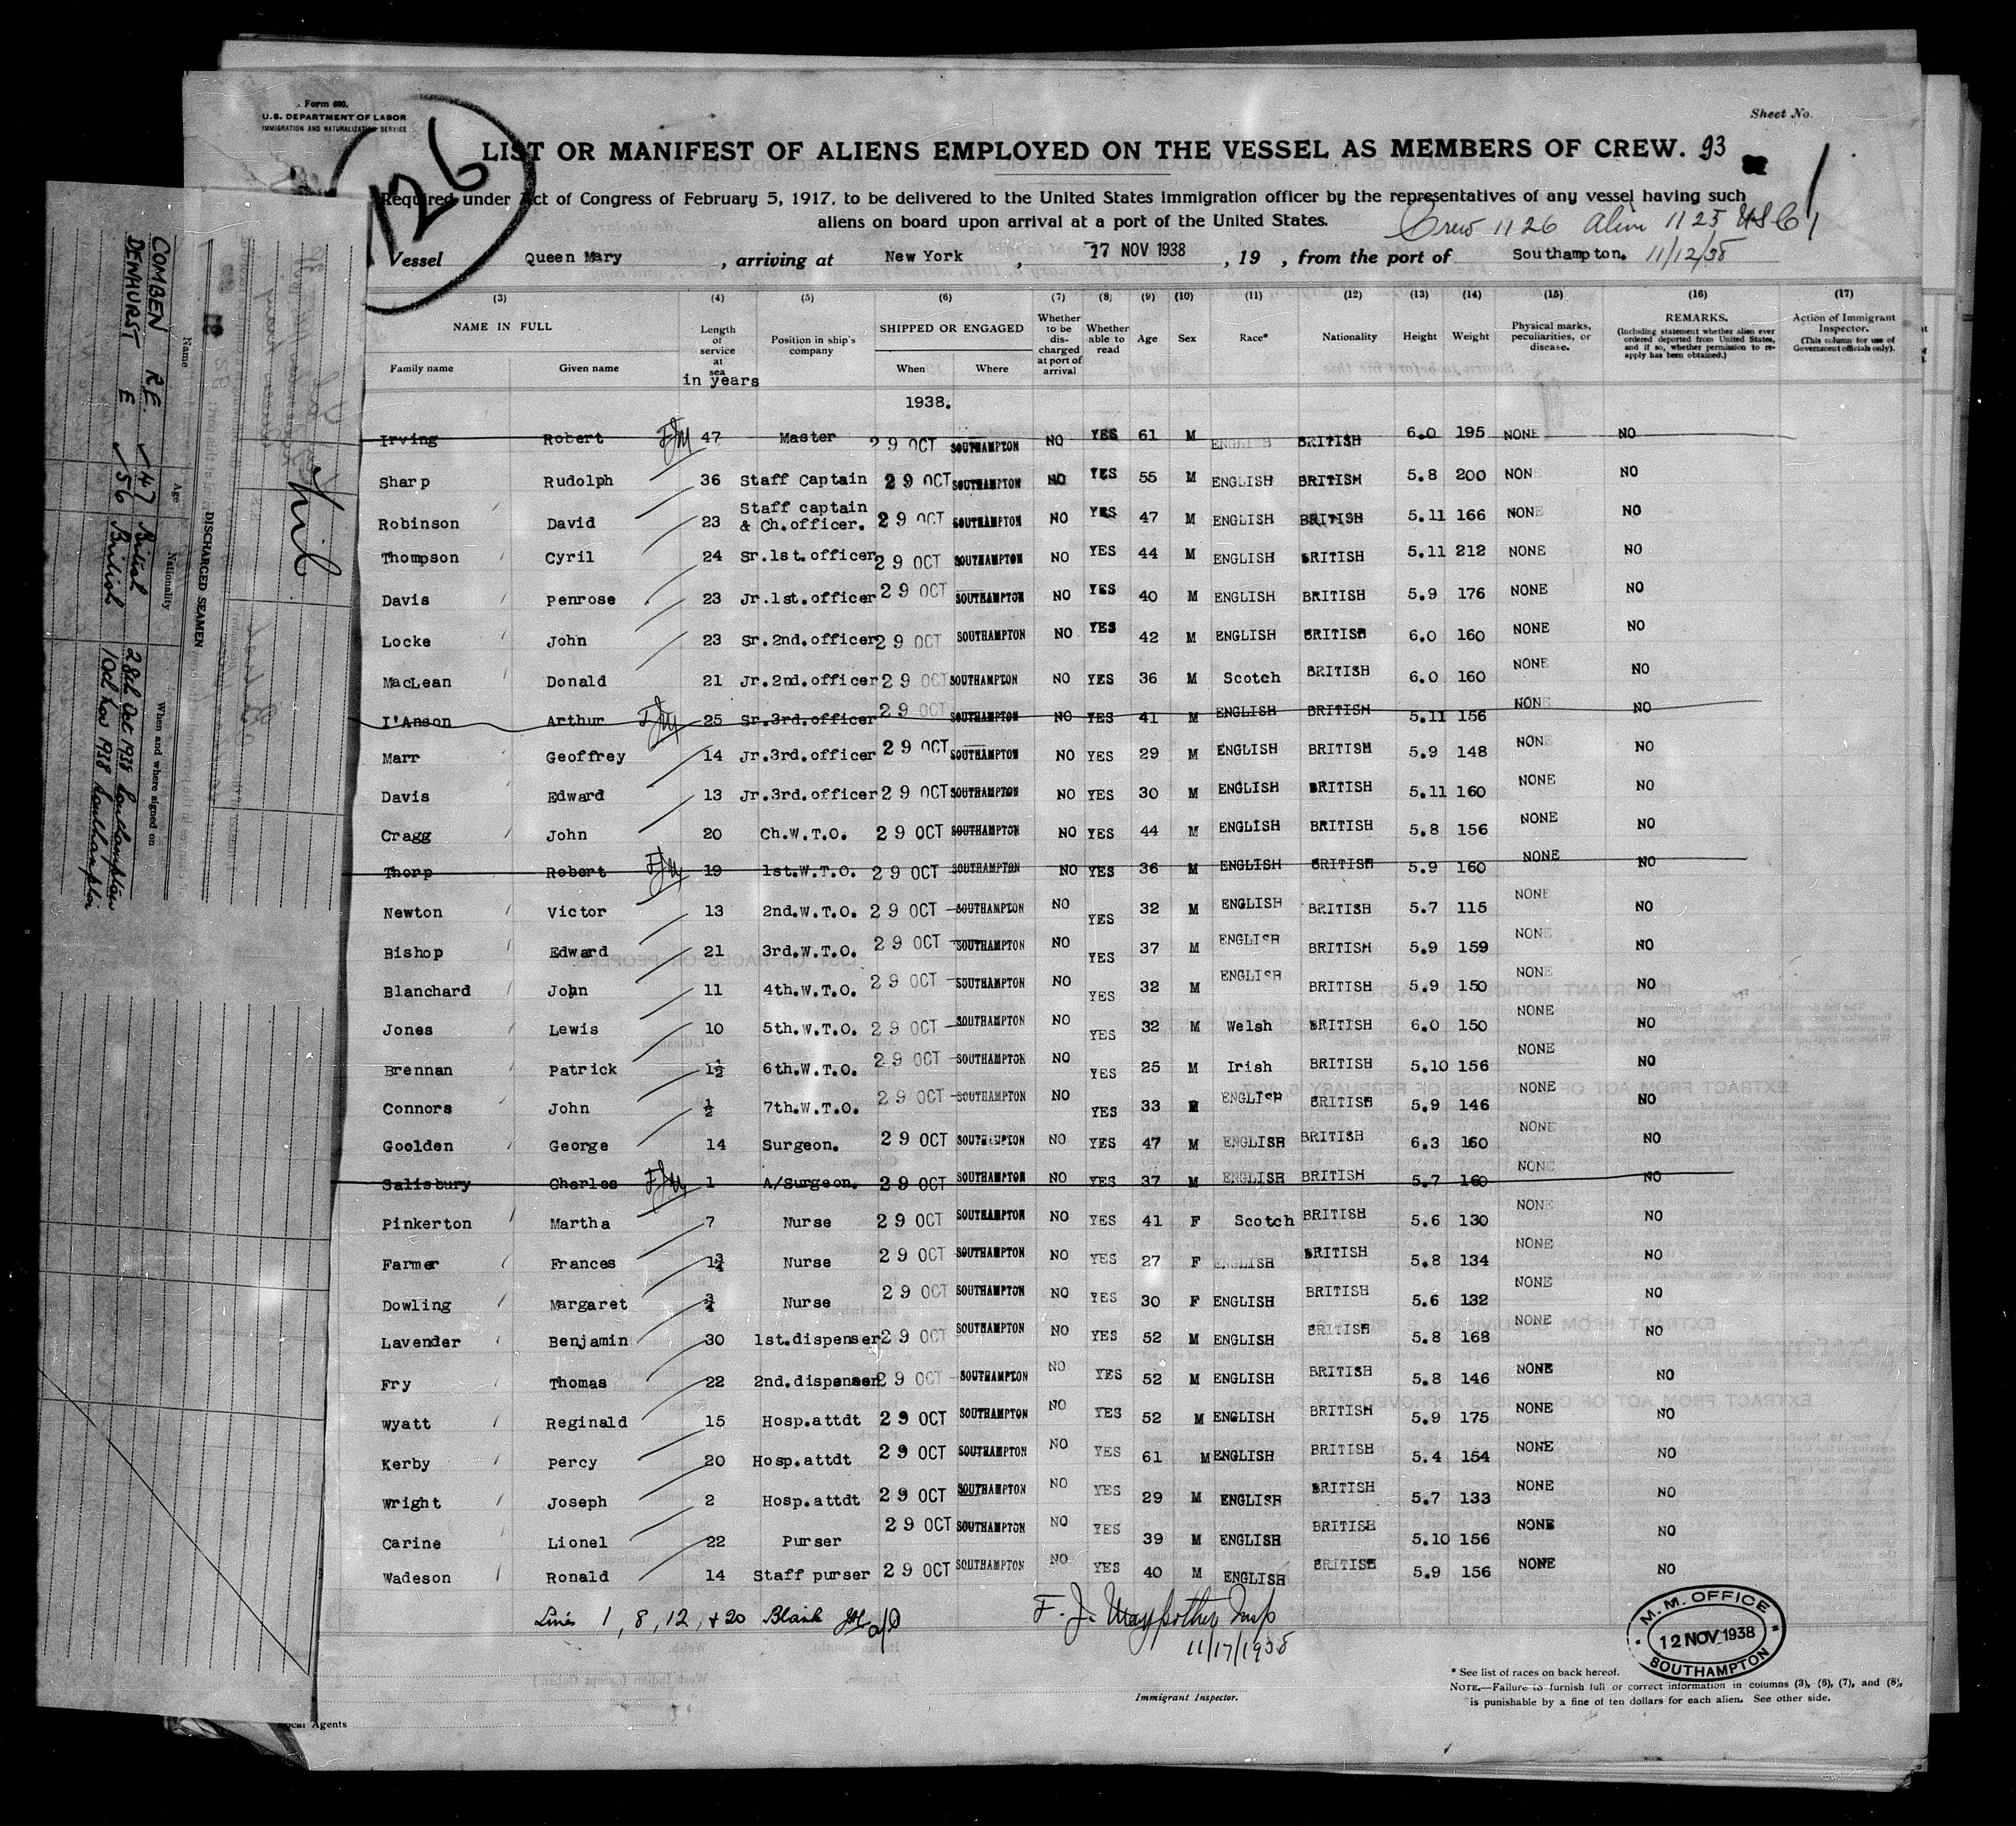 Form 680.
U.S. DEPARTMENT OF LABOR
IMMIGRATION AND NATURALIZATION SERVICE
Sheet No.
126
LIST OR MANIFEST OF ALIENS EMPLOYED ON THE VESSEL AS MEMBERS OF CREW. 93
Required under Act of Congress of February 5, 1917, to be delivered to the United States immigration officer by the representatives of any vessel having such
aliens on board upon arrival at a port of the United States.
Crew 1126 Alien 1125 USC 1
Vessel Queen Mary, arriving at New York, 17 NOV 1938, 19 , from the port of Southampton. 11/12/38
(3) (4) (5) (6) (7) (8) (9) (10) (11) (12) (13) (14) (15) (16) (17)
NAME IN FULL
Family name Given name
Length of service at sea in years
Position in ship's company
SHIPPED OR ENGAGED
When Where
Whether to be discharged at port of arrival
Whether able to read
Age
Sex
Race*
Nationality
Height
Weight
Physical marks, peculiarities, or disease.
REMARKS.
(Including statement whether alien ever ordered deported from United States, and if so, whether permission to reapply has been obtained.)
Action of Immigrant Inspector.
(This column for use of Government officials only).
1938.
Irving Robert 47 Master 29 OCT SOUTHAMPTON NO YES 61 M ENGLISH BRITISH 6.0 195 NONE NO
Sharp Rudolph 36 Staff Captain 29 OCT SOUTHAMPTON NO YES 55 M ENGLISH BRITISH 5.8 200 NONE NO
Robinson David 23 Staff captain & Ch.officer. 29 OCT SOUTHAMPTON NO YES 47 M ENGLISH BRITISH 5.11 166 NONE NO
Thompson Cyril 24 Sr.1st.officer 29 OCT SOUTHAMPTON NO YES 44 M ENGLISH BRITISH 5.11 212 NONE NO
Davis Penrose 23 Jr.1st.officer 29 OCT SOUTHAMPTON NO YES 40 M ENGLISH BRITISH 5.9 176 NONE NO
Locke John 23 Sr.2nd.officer 29 OCT SOUTHAMPTON NO YES 42 M ENGLISH BRITISH 6.0 160 NONE NO
MacLean Donald 21 Jr.2nd.officer 29 OCT SOUTHAMPTON NO YES 36 M Scotch BRITISH 6.0 160 NONE NO
I'Anson Arthur 25 Sr.3rd.officer 29 OCT SOUTHAMPTON NO YES 41 M ENGLISH BRITISH 5.11 156 NONE NO
Marr Geoffrey 14 Jr.3rd.officer 29 OCT SOUTHAMPTON NO YES 29 M ENGLISH BRITISH 5.9 148 NONE NO
Davis Edward 13 Jr.3rd.officer 29 OCT SOUTHAMPTON NO YES 30 M ENGLISH BRITISH 5.11 160 NONE NO
Cragg John 20 Ch.W.T.O. 29 OCT SOUTHAMPTON NO YES 44 M ENGLISH BRITISH 5.8 156 NONE NO
Thorp Robert 19 1st.W.T.O. 29 OCT SOUTHAMPTON NO YES 36 M ENGLISH BRITISH 5.9 160 NONE NO
Newton Victor 13 2nd.W.T.O. 29 OCT SOUTHAMPTON NO YES 32 M ENGLISH BRITISH 5.7 115 NONE NO
Bishop Edward 21 3rd.W.T.O. 29 OCT SOUTHAMPTON NO YES 37 M ENGLISH BRITISH 5.9 159 NONE NO
Blanchard John 11 4th.W.T.O. 29 OCT SOUTHAMPTON NO YES 32 M ENGLISH BRITISH 5.9 150 NONE NO
Jones Lewis 10 5th.W.T.O. 29 OCT SOUTHAMPTON NO YES 32 M Welsh BRITISH 6.0 150 NONE NO
Brennan Patrick 1½ 6th.W.T.O. 29 OCT SOUTHAMPTON NO YES 25 M Irish BRITISH 5.10 156 NONE NO
Connors John ½ 7th.W.T.O. 29 OCT SOUTHAMPTON NO YES 33 M ENGLISH BRITISH 5.9 146 NONE NO
Goolden George 14 Surgeon. 29 OCT SOUTHAMPTON NO YES 47 M ENGLISH BRITISH 6.3 160 NONE NO
Salisbury Charles 1 A/Surgeon. 29 OCT SOUTHAMPTON NO YES 37 M ENGLISH BRITISH 5.7 160 NONE NO
Pinkerton Martha 7 Nurse 29 OCT SOUTHAMPTON NO YES 41 F Scotch BRITISH 5.6 130 NONE NO
Farmer Frances 1¾ Nurse 29 OCT SOUTHAMPTON NO YES 27 F ENGLISH BRITISH 5.8 134 NONE NO
Dowling Margaret ¾ Nurse 29 OCT SOUTHAMPTON NO YES 30 F ENGLISH BRITISH 5.6 132 NONE NO
Lavender Benjamin 30 1st.dispenser 29 OCT SOUTHAMPTON NO YES 52 M ENGLISH BRITISH 5.8 168 NONE NO
Fry Thomas 22 2nd.dispenser 29 OCT SOUTHAMPTON NO YES 52 M ENGLISH BRITISH 5.8 146 NONE NO
Wyatt Reginald 15 Hosp.attdt 29 OCT SOUTHAMPTON NO YES 52 M ENGLISH BRITISH 5.9 175 NONE NO
Kerby Percy 20 Hosp.attdt 29 OCT SOUTHAMPTON NO YES 61 M ENGLISH BRITISH 5.4 154 NONE NO
Wright Joseph 2 Hosp.attdt 29 OCT SOUTHAMPTON NO YES 29 M ENGLISH BRITISH 5.7 133 NONE NO
Carine Lionel 22 Purser 29 OCT SOUTHAMPTON NO YES 39 M ENGLISH BRITISH 5.10 156 NONE NO
Wadeson Ronald 14 Staff purser 29 OCT SOUTHAMPTON NO YES 40 M ENGLISH BRITISH 5.9 156 NONE NO
Lines 1, 8, 12, + 20 Blank
11/17/1938
Immigrant Inspector.
M.M. OFFICE
12 NOV 1938
SOUTHAMPTON
* See list of races on back hereof.
NOTE.—Failure to furnish full or correct information in columns (3), (6), (7), and (8),
is punishable by a fine of ten dollars for each alien. See other side.
Local Agents
DISCHARGED SEAMEN
Name Age Nationality When and where signed on
COMBEN R.E. 47 British 28th Oct 1938 Southampton
DENHURST E 56 British 1938 Southampton
Nil